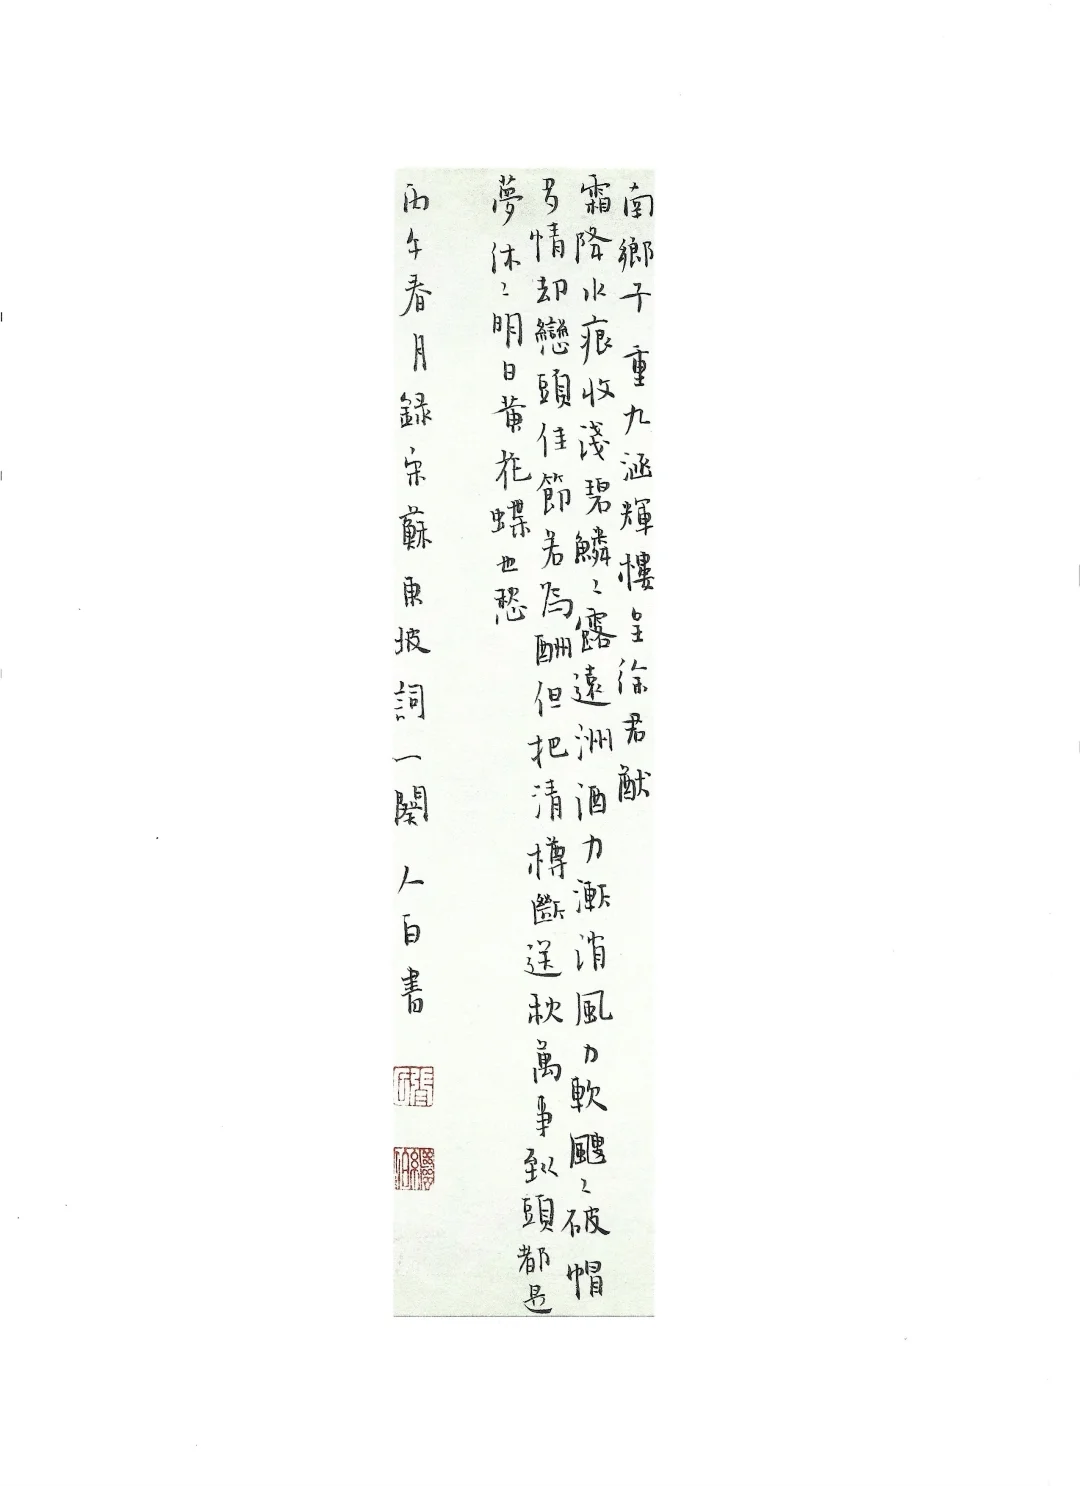 南鄉子 重九涵輝樓呈徐君猷
霜降水痕收淺碧鱗〻露遠洲酒力漸消風力軟颼〻破帽
多情却戀頭佳節若為酬但把清樽斷送秋萬事到頭都是
夢休〻明日黃花蝶也愁
丙午春月錄宋蘇東坡詞一闋 人白書